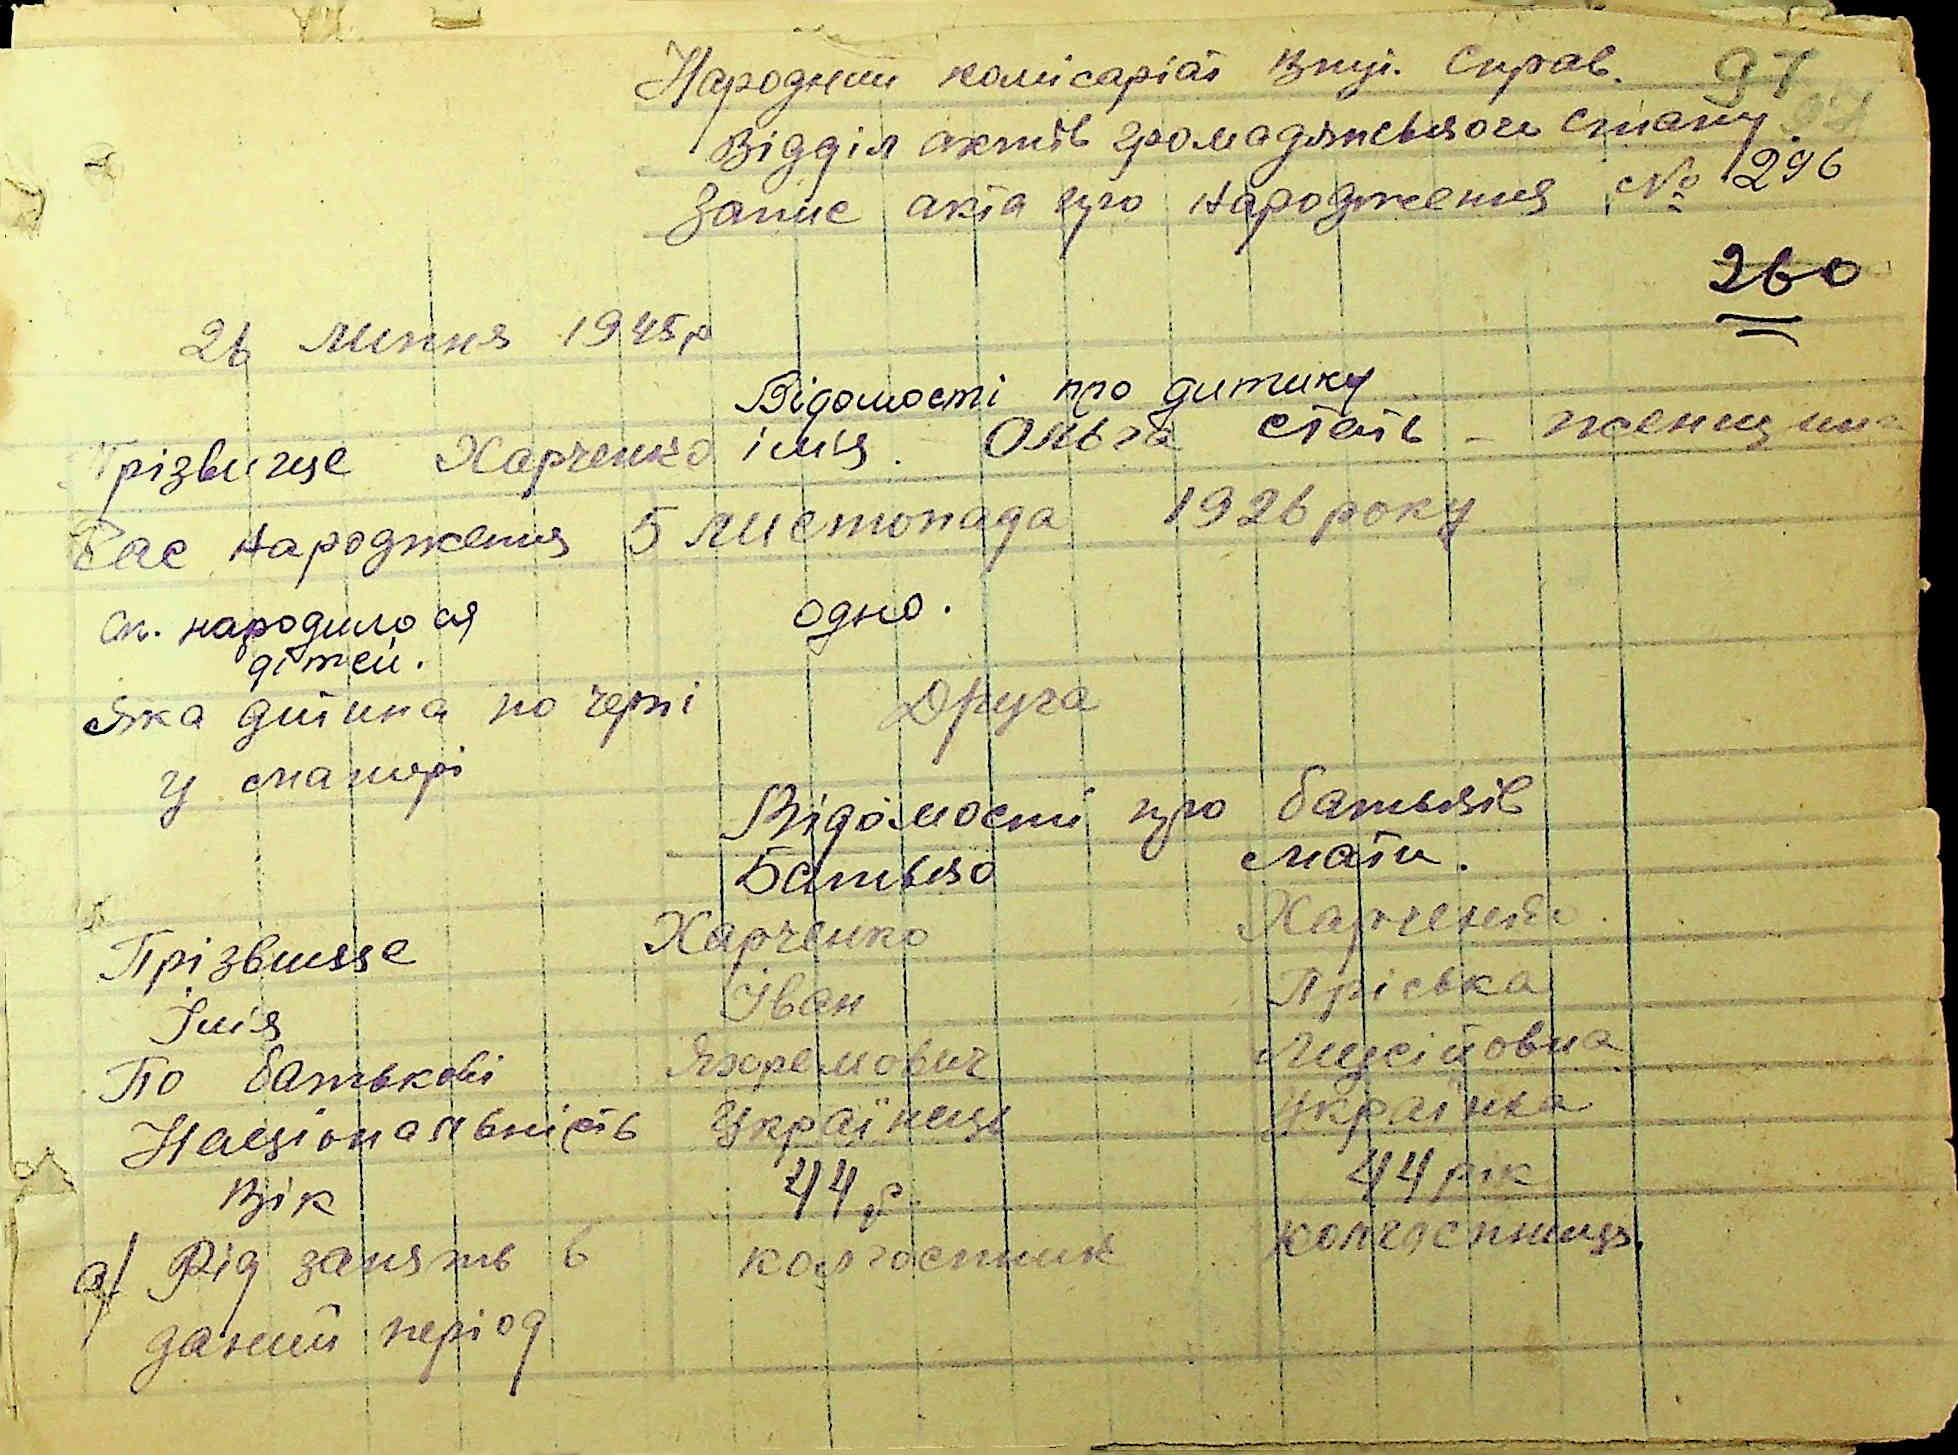 Народний комісаріат Внут. Справ. 97
Відділ актів громадянського стану. 97
Запис акта про народження № 296
260
26 липня 1945 р
Відомості про дитину
Прізвище Харченко імія. Ольга стать - женщина
Час народження 5 листопада 1926 року
Ск. народилося одно.
дітей.
Яка дитина по черзі Друга
у матері
Відомості про батьків
Батько мати.
Прізвище Харченко Харченко.
Імія Іван Пріська
По батькові Яхремович
Національність Українець Українка
Вік 44 р. 44 рік
а/ Рід занять в колгоспник колгоспниця.
даний період